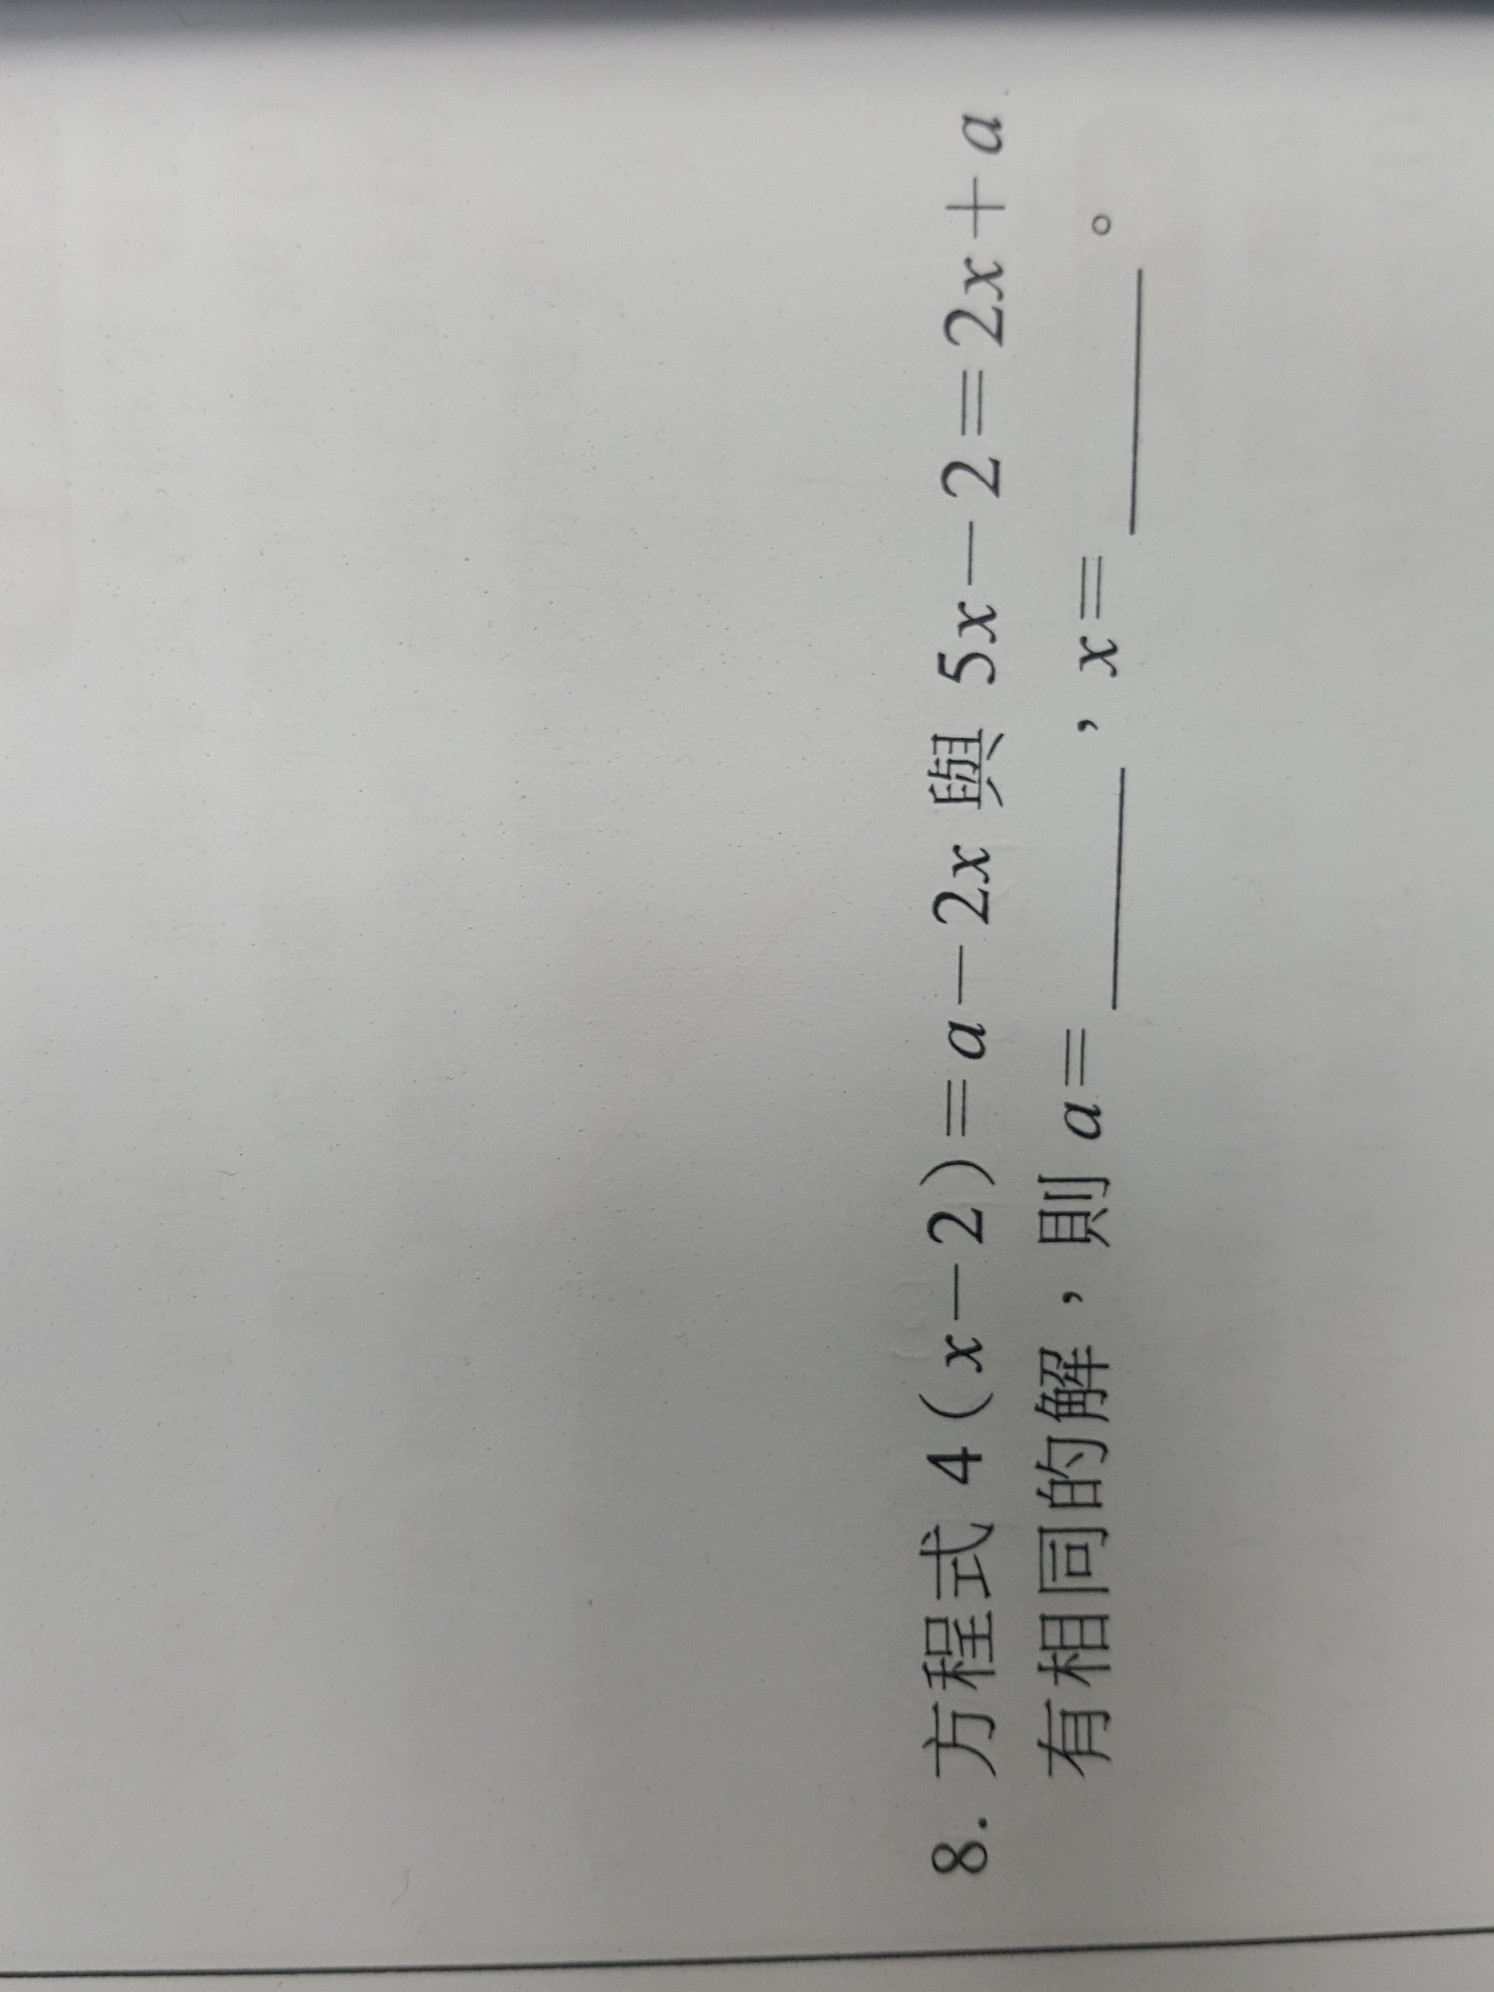 8. 方程式 4(x－2)＝a－2x 與 5x－2＝2x＋a
有相同的解，則 a＝＿＿＿＿，x＝＿＿＿＿。